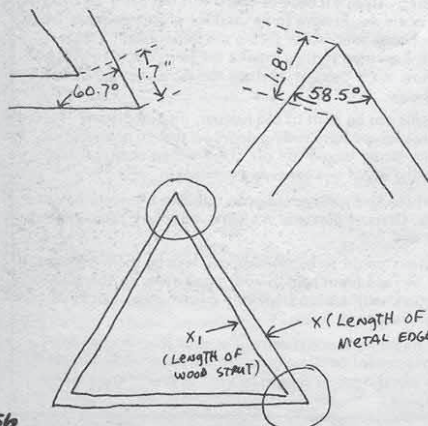 60.7°
1.7"
1.8"
58.5°
X₁
(LENGTH OF
WOOD STRUT)
X (LENGTH OF
METAL EDGE